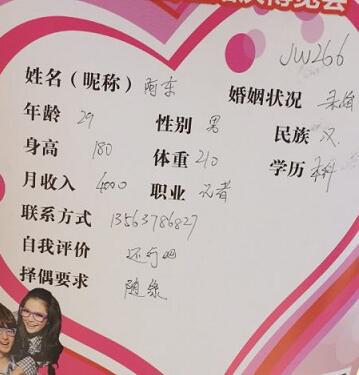 博览会
JW266
姓名（昵称） 阿东 婚姻状况 未婚
年龄 29 性别 男 民族 汉
身高 180 体重 210 学历 本科
月收入 4000 职业 记者
联系方式 13563786827
自我评价 还行吧
择偶要求 随缘